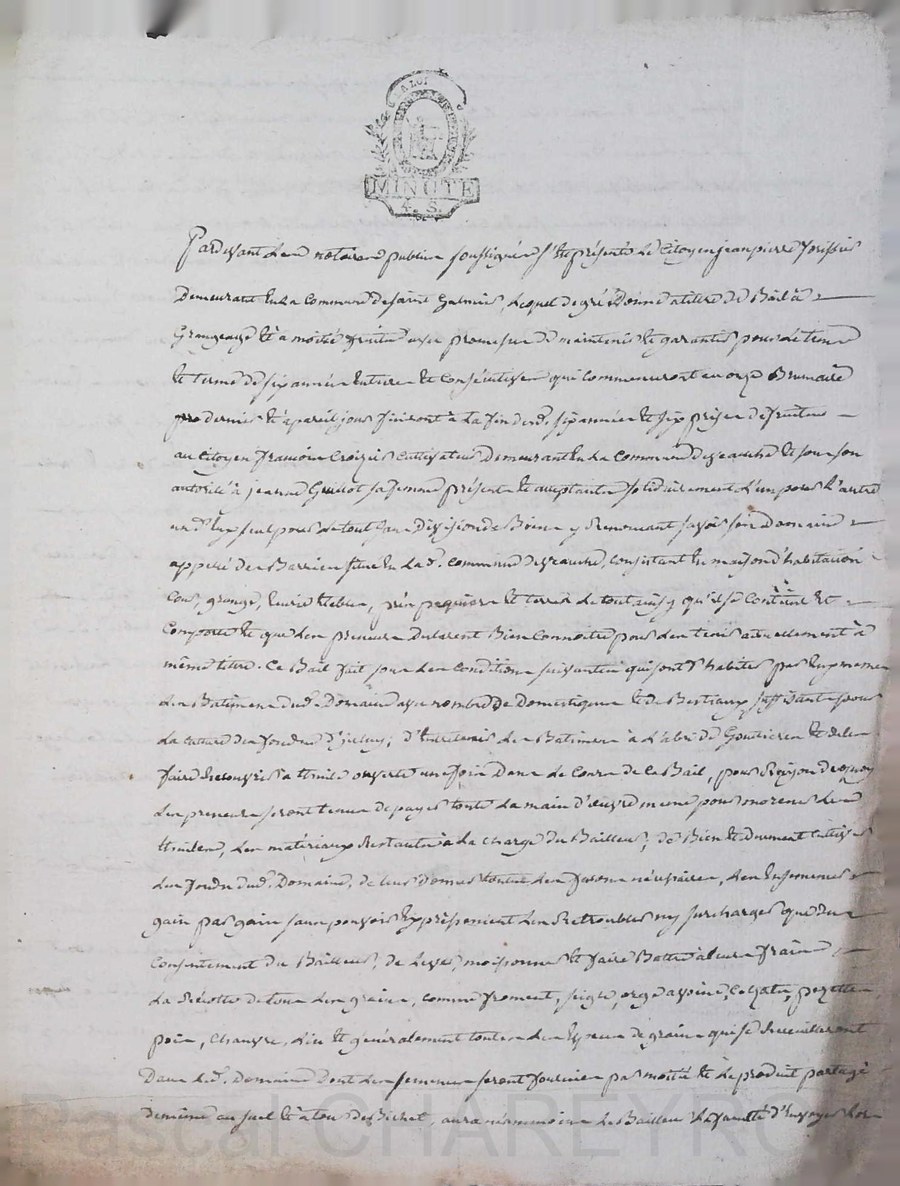 LA LOI
MINUTE
4. S.
Pardevant les notaires publics soussignés s'est présenté le Citoyen jean pierre
Demeurant en la Commune de saint Galmier, lequel de gré Donne a titre de Bail à
Grangeage et à moitié fruits avec promesse de maintenir et garantir pour le tems
et terme de six années entieres et consécutives qui commenceront au onze Brumaire
prod. dernier et à pareil jour finiront à la fin desd. six années et six prises de fruits
au Citoyen françois Croizier Cultivateur Demeurant en la Commune de veauche et sous son
autorité à jeanne sa femme présents et acceptants solidairement l'un pour l'autre
un d'eux seul pour le tout sans Division de Biens y Renonçant savoir son Domaine
appellé des Barries situé en lad. commune de veauche, consistant en maison d'habitation
Cour, grange, écurie étables, prés paquiers et terres le tout ainsy qu'il se Contient et
Comporte et que les preneurs Declarent Bien Connoitre pour les tenir actuellement à
même titre. Ce Bail fait sous les conditions suivantes qui sont d'habiter par les preneurs
les Batimens dud. Domaine avec nombre de Domestiques et de Bestiaux suffisants pour
la culture des fonds d'iceluy; d'Entretenir les Batimens à l'abri de Goutieres et de les
faire Recouvrir à thuile ouverte une fois Dans le Cours de ce Bail, pour Raison de quoy
les preneurs seront tenus de payer toute la main d'œuvre même pour les
thuiles, les matériaux Restants à la charge du Bailleur; de Bien et Duement Cultiver
les fonds dud. Domaine, de leur donner toutes les façons nécessaires, les Ensemencer
gain par gain sans pouvoir Expressement les Retroubler ny surcharger que du
Consentement du Bailleur; de lever, moissonner et faire Battre à leurs fraix
la Récolte de tous les grains, comme froment, seigle, orge avoine, Colzats, pezettes,
pois, Chanvre, et généralement toutes les Especes de grains qui se Recueilleront
Dans led. Domaine Dont les semences seront fournies par moitié et le produit partagé
de même au suel et à tour de Bichet, aura néanmoins le Bailleur la faculté d'Envoyer
Pascal CHAREYRON